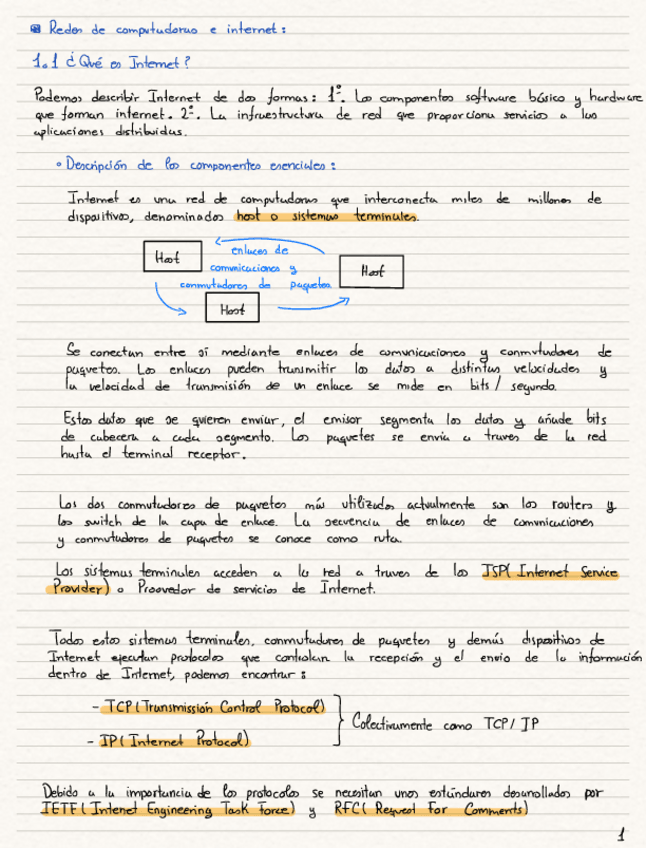 Redes de computadoras e internet:
1.1 ¿Qué es Internet?
Podemos describir Internet de dos formas: 1º. Los componentes software básico y hardware
que forman internet. 2º. La infraestructura de red que proporciona servicios a las
aplicaciones distribuidas.
• Descripción de los componentes esenciales:
Internet es una red de computadoras que interconecta miles de millones de
dispositivos, denominados host o sistemas terminales.
Host
enlaces de
comunicaciones y
conmutadores de paquetes
Host
Host
Se conectan entre sí mediante enlaces de comunicaciones y conmutadores de
paquetes. Los enlaces pueden transmitir los datos a distintas velocidades y
la velocidad de transmisión de un enlace se mide en bits/segundo.
Estos datos que se quieren enviar, el emisor segmenta los datos y añade bits
de cabecera a cada segmento. Los paquetes se envia a traves de la red
hasta el terminal receptor.
Los dos conmutadores de paquetes más utilizados actualmente son los routers y
los switch de la capa de enlace. La secuencia de enlaces de comunicaciones
y conmutadores de paquetes se conoce como ruta.
Los sistemas terminales acceden a la red a traves de los ISP( Internet Service
Provider) o Proovedor de servicios de Internet.
Todos estos sistemas terminales, conmutadores de paquetes y demás dispositivos de
Internet ejecutan protocolos que controlan la recepción y el envio de la información
dentro de Internet, podemos encontrar:
- TCP(Transmission Control Protocol)
- IP( Internet Protocol)
Colectivamente como TCP/IP
Debido a la importancia de los protocolos se necesitan unos estándares desarrollados por
IETF( Intenet Engineering Task Force) y RFC( Request For Comments)
1